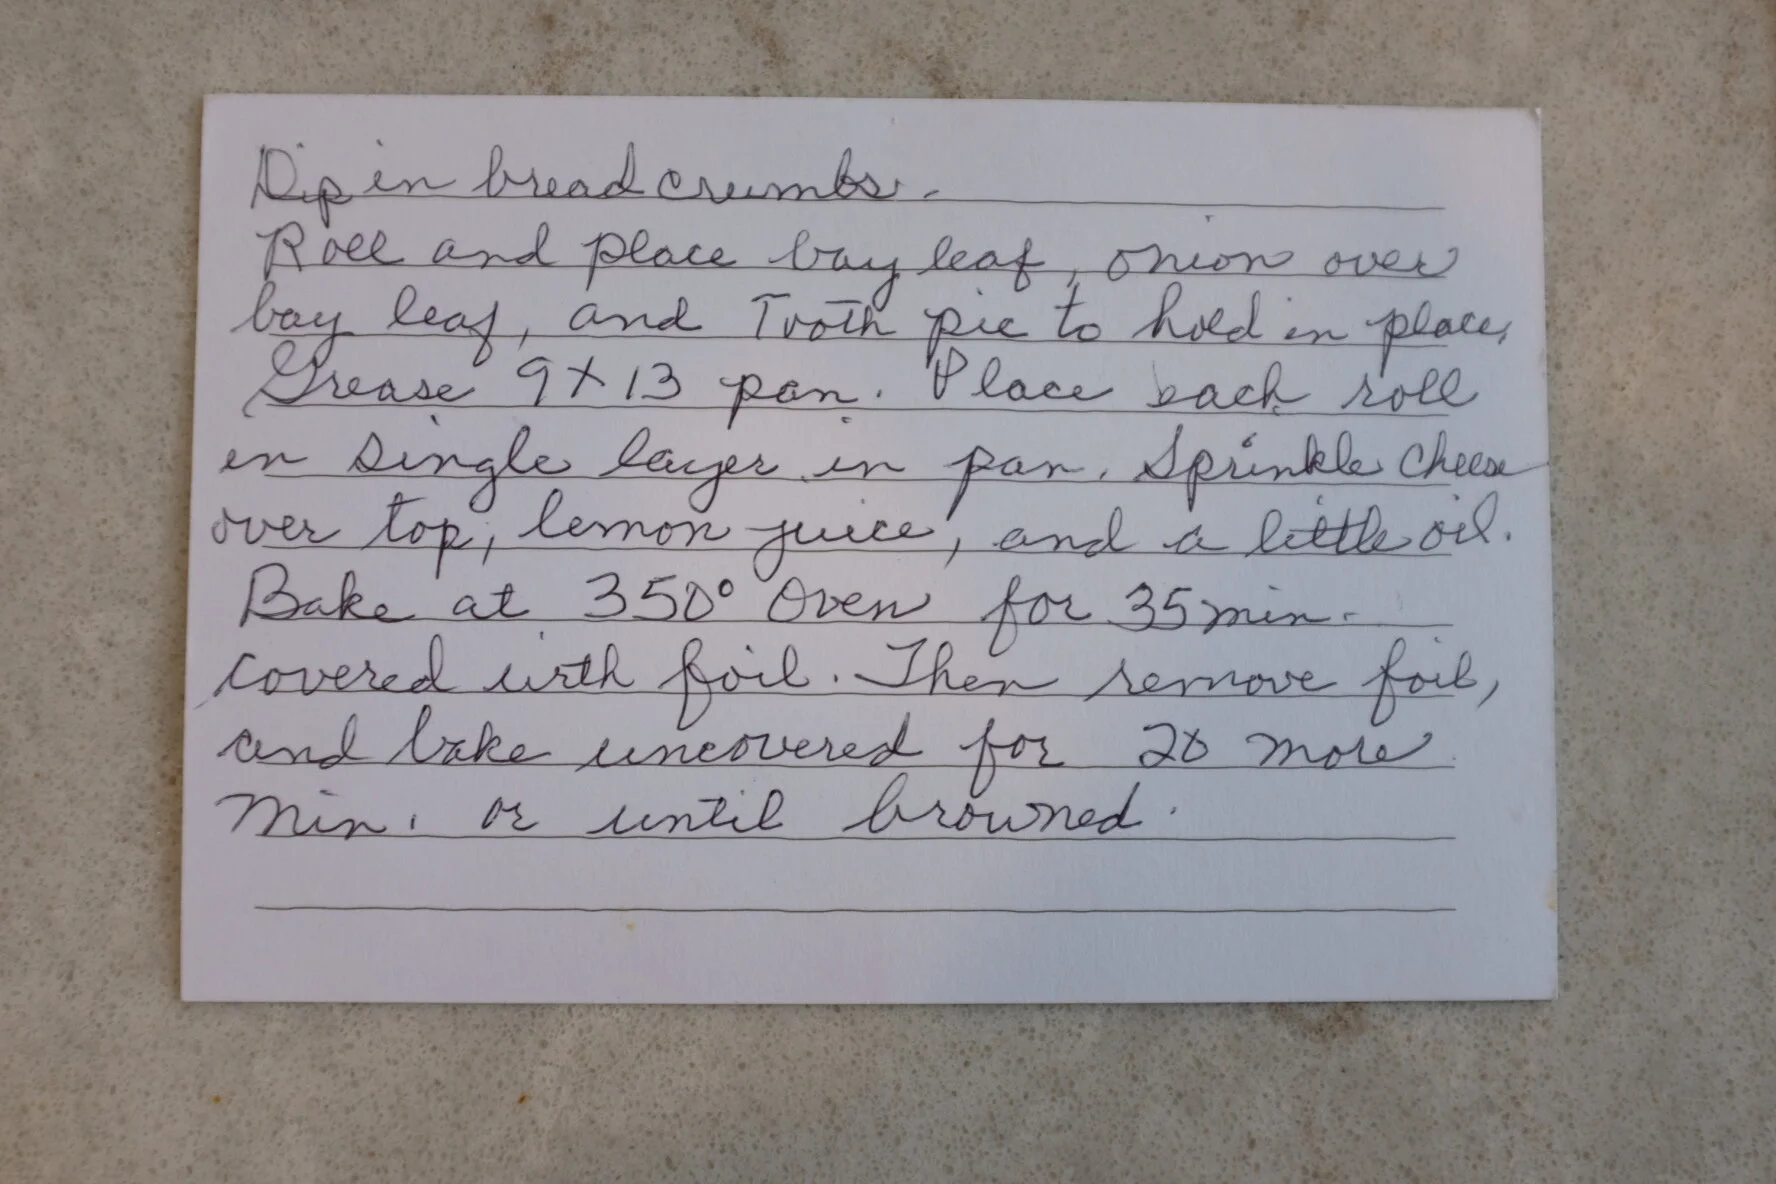 Dip in bread crumbs.
Roll and place bay leaf, onion over
bay leaf, and Tooth pic to hold in place,
Grease 9x13 pan. Place each roll
in single layer in pan. Sprinkle cheese
over top, lemon juice, and a little oil.
Bake at 350° Oven for 35 min.
covered with foil. Then remove foil,
and bake uncovered for 20 more
min. or until browned.